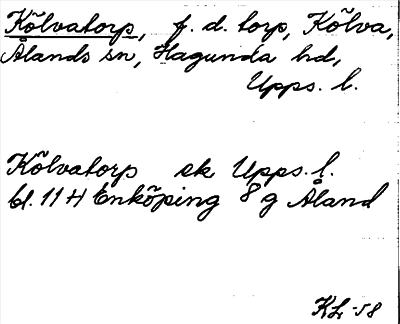 Kölvatorp, f. d. torp, Kölva,
Ålands sn, Hagunda hd,
Upps. l.
Kölvatorp ek Upps. l.
bl. 11 H Enköping 8 g Åland
KL -58